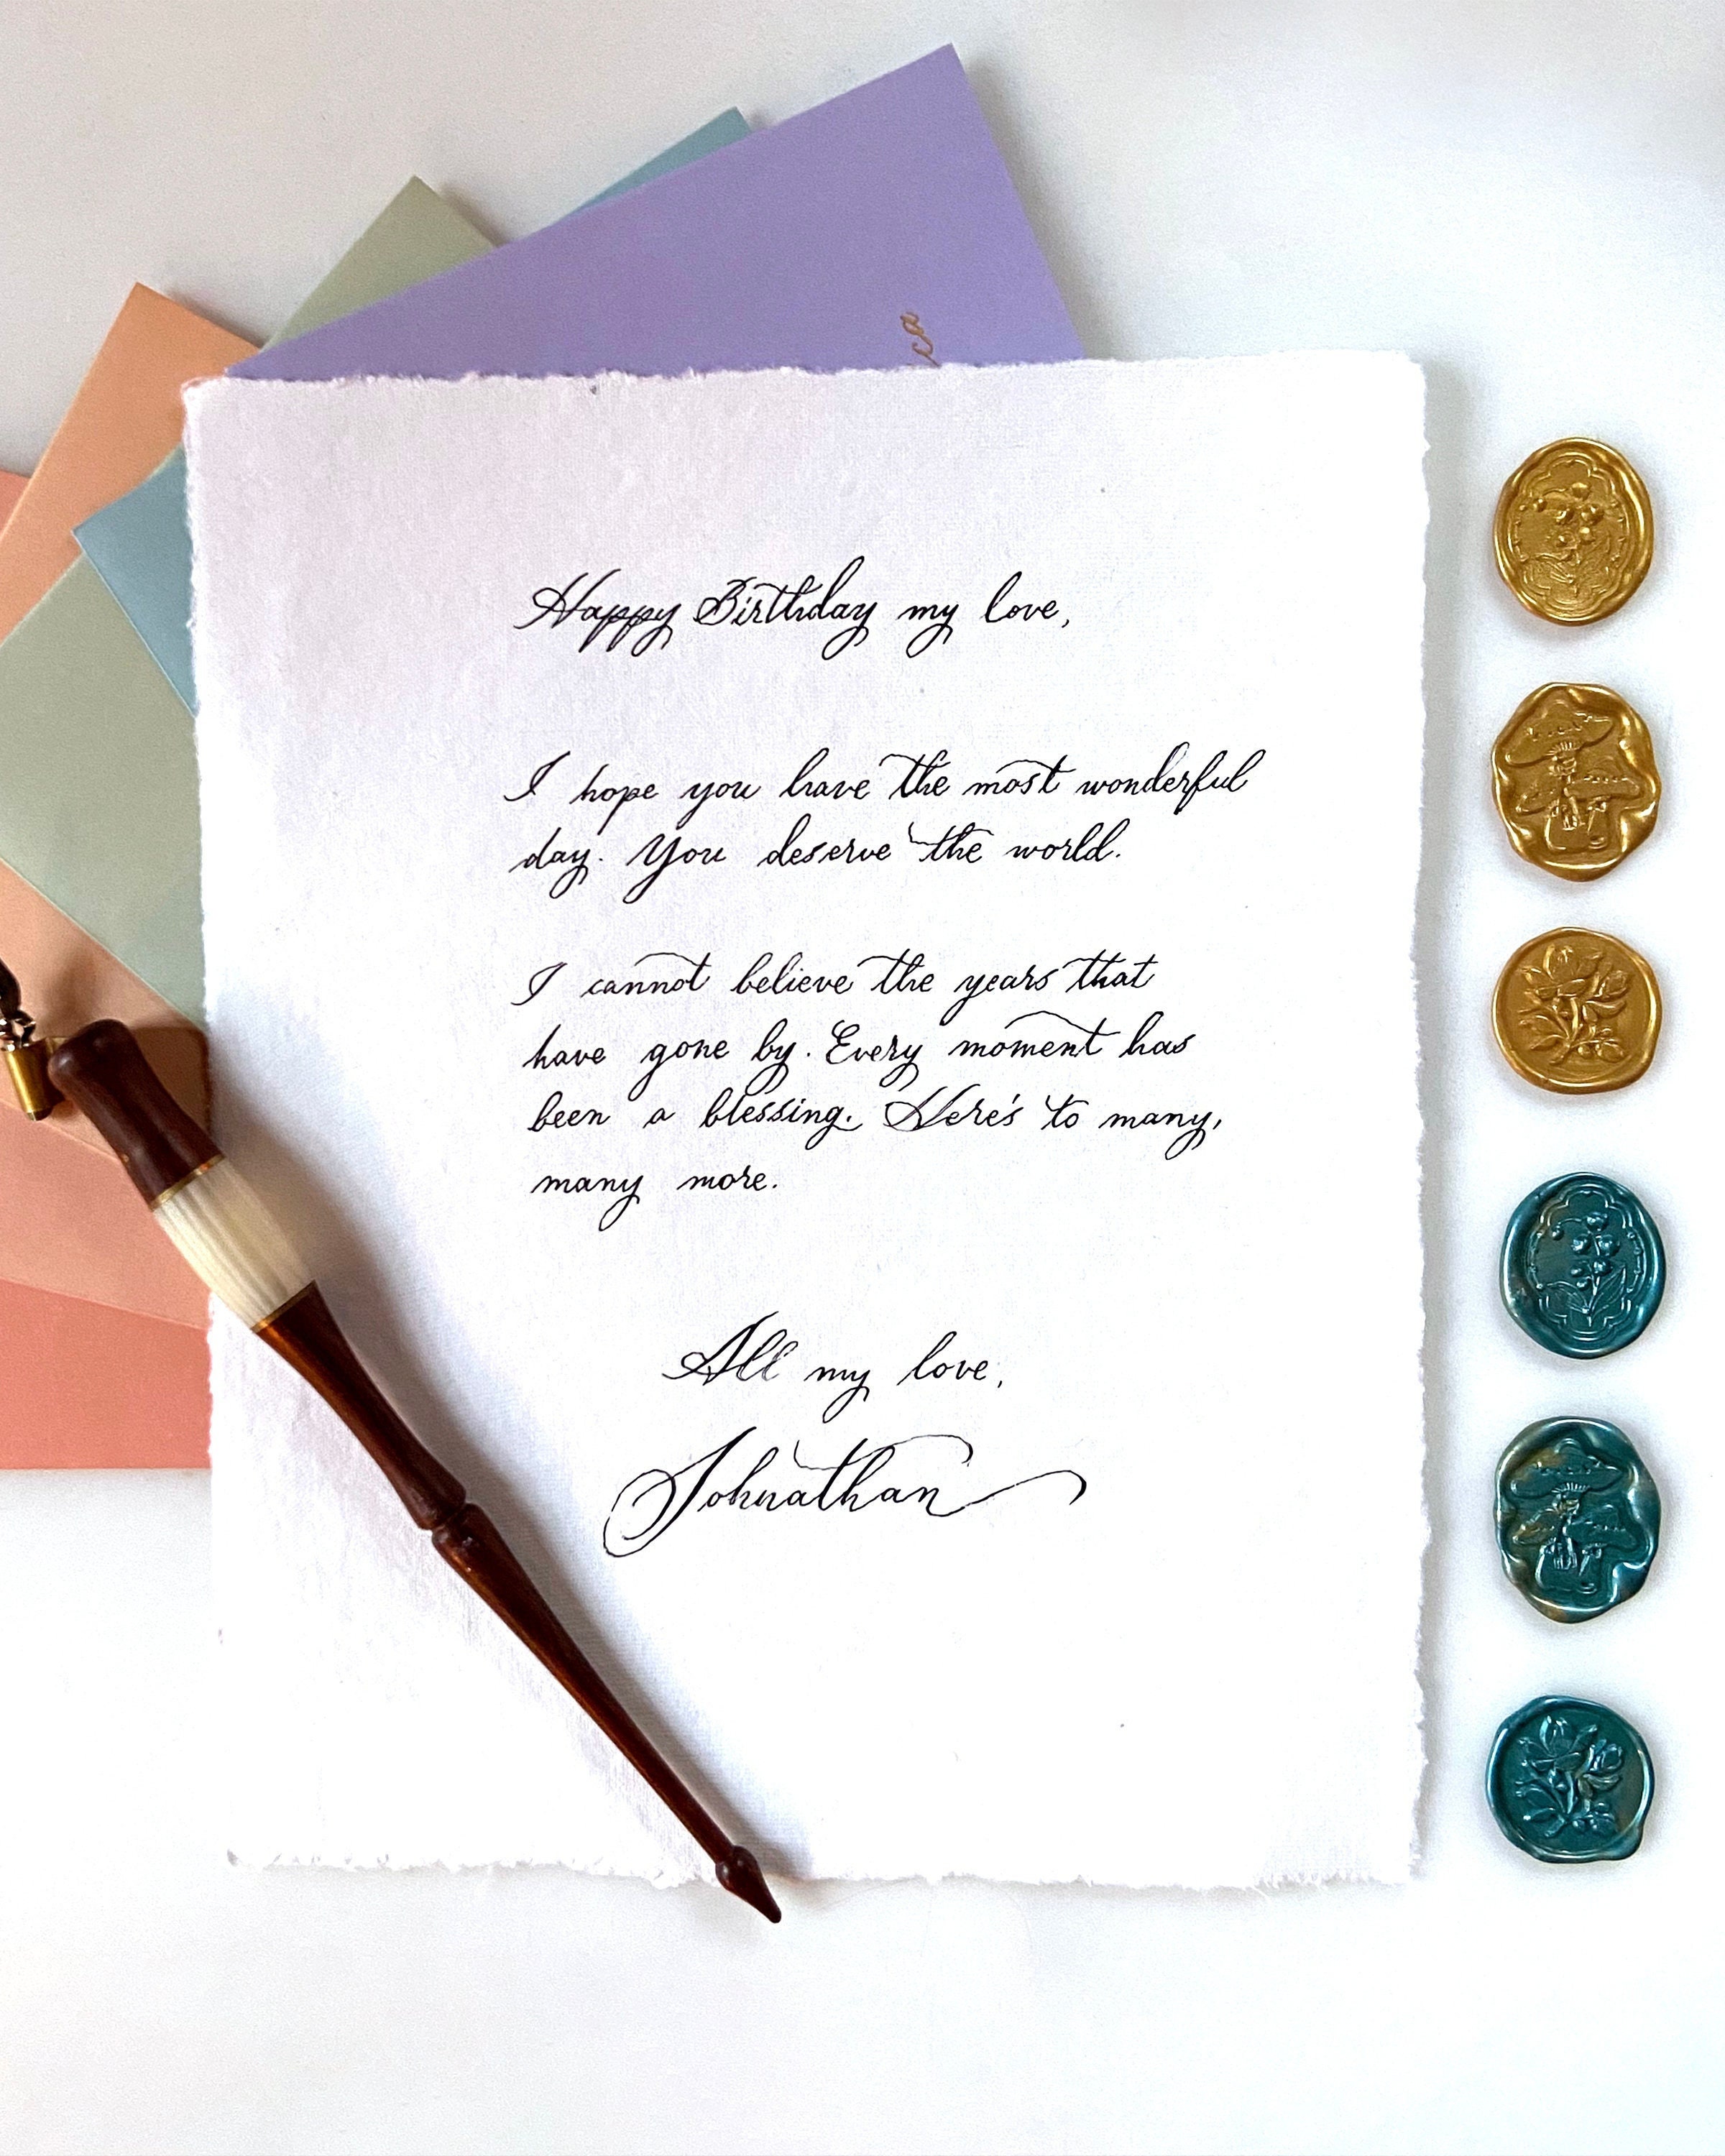 ca
Happy Birthday my love,
I hope you have the most wonderful
day. You deserve the world.
I cannot believe the years that
have gone by. Every moment has
been a blessing. Here's to many,
many more.
All my love,
Johnathan